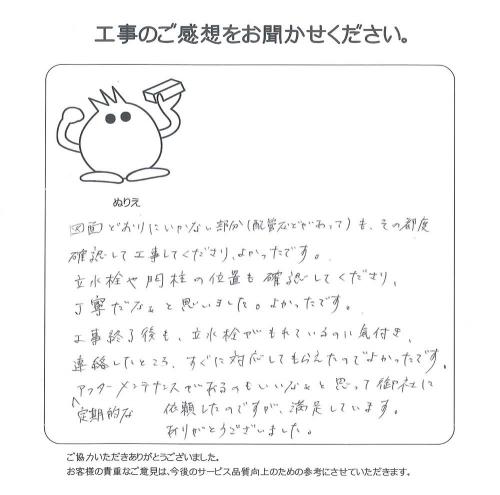 工事のご感想をお聞かせください。
ぬりえ
図面どおりにいかない部分(配管などがあって)も、その都度
確認して工事してくださり、よかったです。
立水栓や門柱の位置も確認してくださり、
丁寧だなぁと思いました。よかったです。
工事終了後も、立水栓がもれているのに気付き、
連絡したところ、すぐに対応してもらえたのでよかったです。
アフターメンテナンスがあるのもいいなぁと思って御社に
^定期的な 依頼したのですが、満足しています。
ありがとうございました。
ご協力いただきありがとうございました。
お客様の貴重なご意見は、今後のサービス品質向上のための参考にさせていただきます。